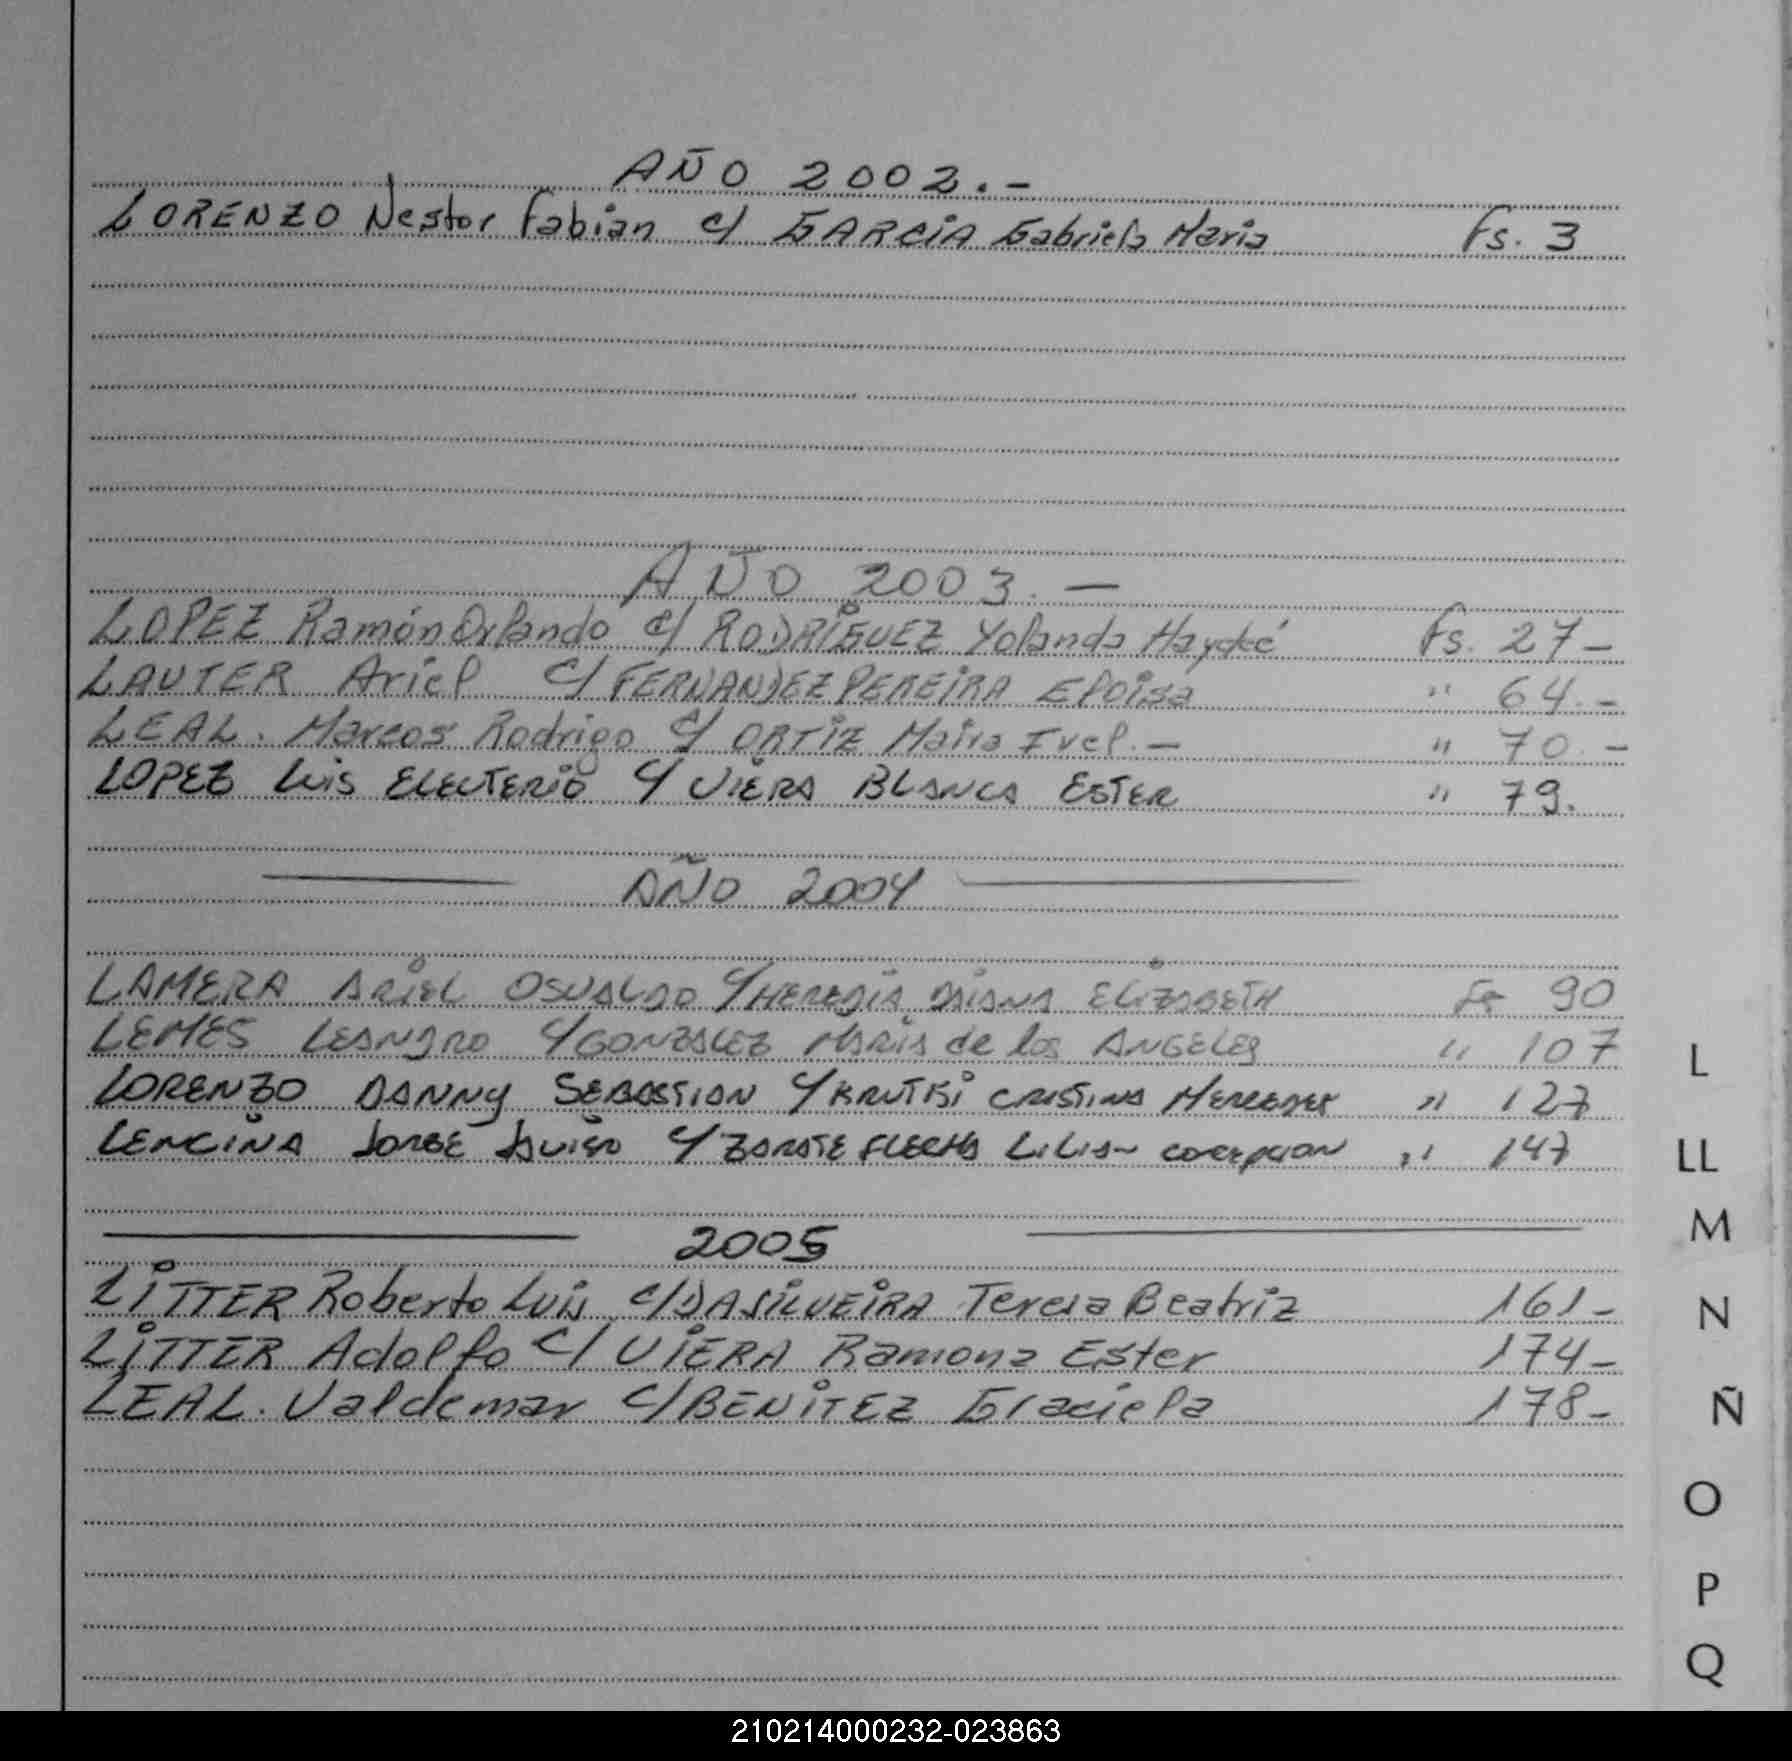 AÑO 2002.-
LORENZO Nestor Fabian c/ GARCIA Gabriela Maria Fs. 3
AÑO 2003.-
LOPEZ Ramón Orlando c/ RODRÍGUEZ Yolanda Haydeé Fs. 27-
LAUTER Ariel c/ FERNANDEZ PEREIRA Eloisa " 64.-
LEAL. Marcos Rodrigo c/ ORTIZ Maira Ivel.- " 70.-
LOPEZ Luis ELEUTERIO c/ VIERA BLANCA ESTER " 79.
AÑO 2004
LAMERA ARIEL OSVALDO c/ HEREDIA DAIANA ELIZABETH Fs 90
LEMES LEANDRO c/ GONZALEZ MARIA de los ANGELES " 107
LORENZO DANNY SEBASTIAN c/ KRUTKI CRISTINA MERCEDES " 127
LENCINA JORGE JAVIER c/ ZARATE FLECHA LILIAN " 147
2005
LITTER Roberto Luis c/ DASILVEIRA Teresa Beatriz 161-
LITTER Adolfo c/ VIERA Ramona Ester 174-
LEAL. Valdemar c/ BENITEZ Graciela 178-
L
LL
M
N
Ñ
O
P
Q
210214000232-023863